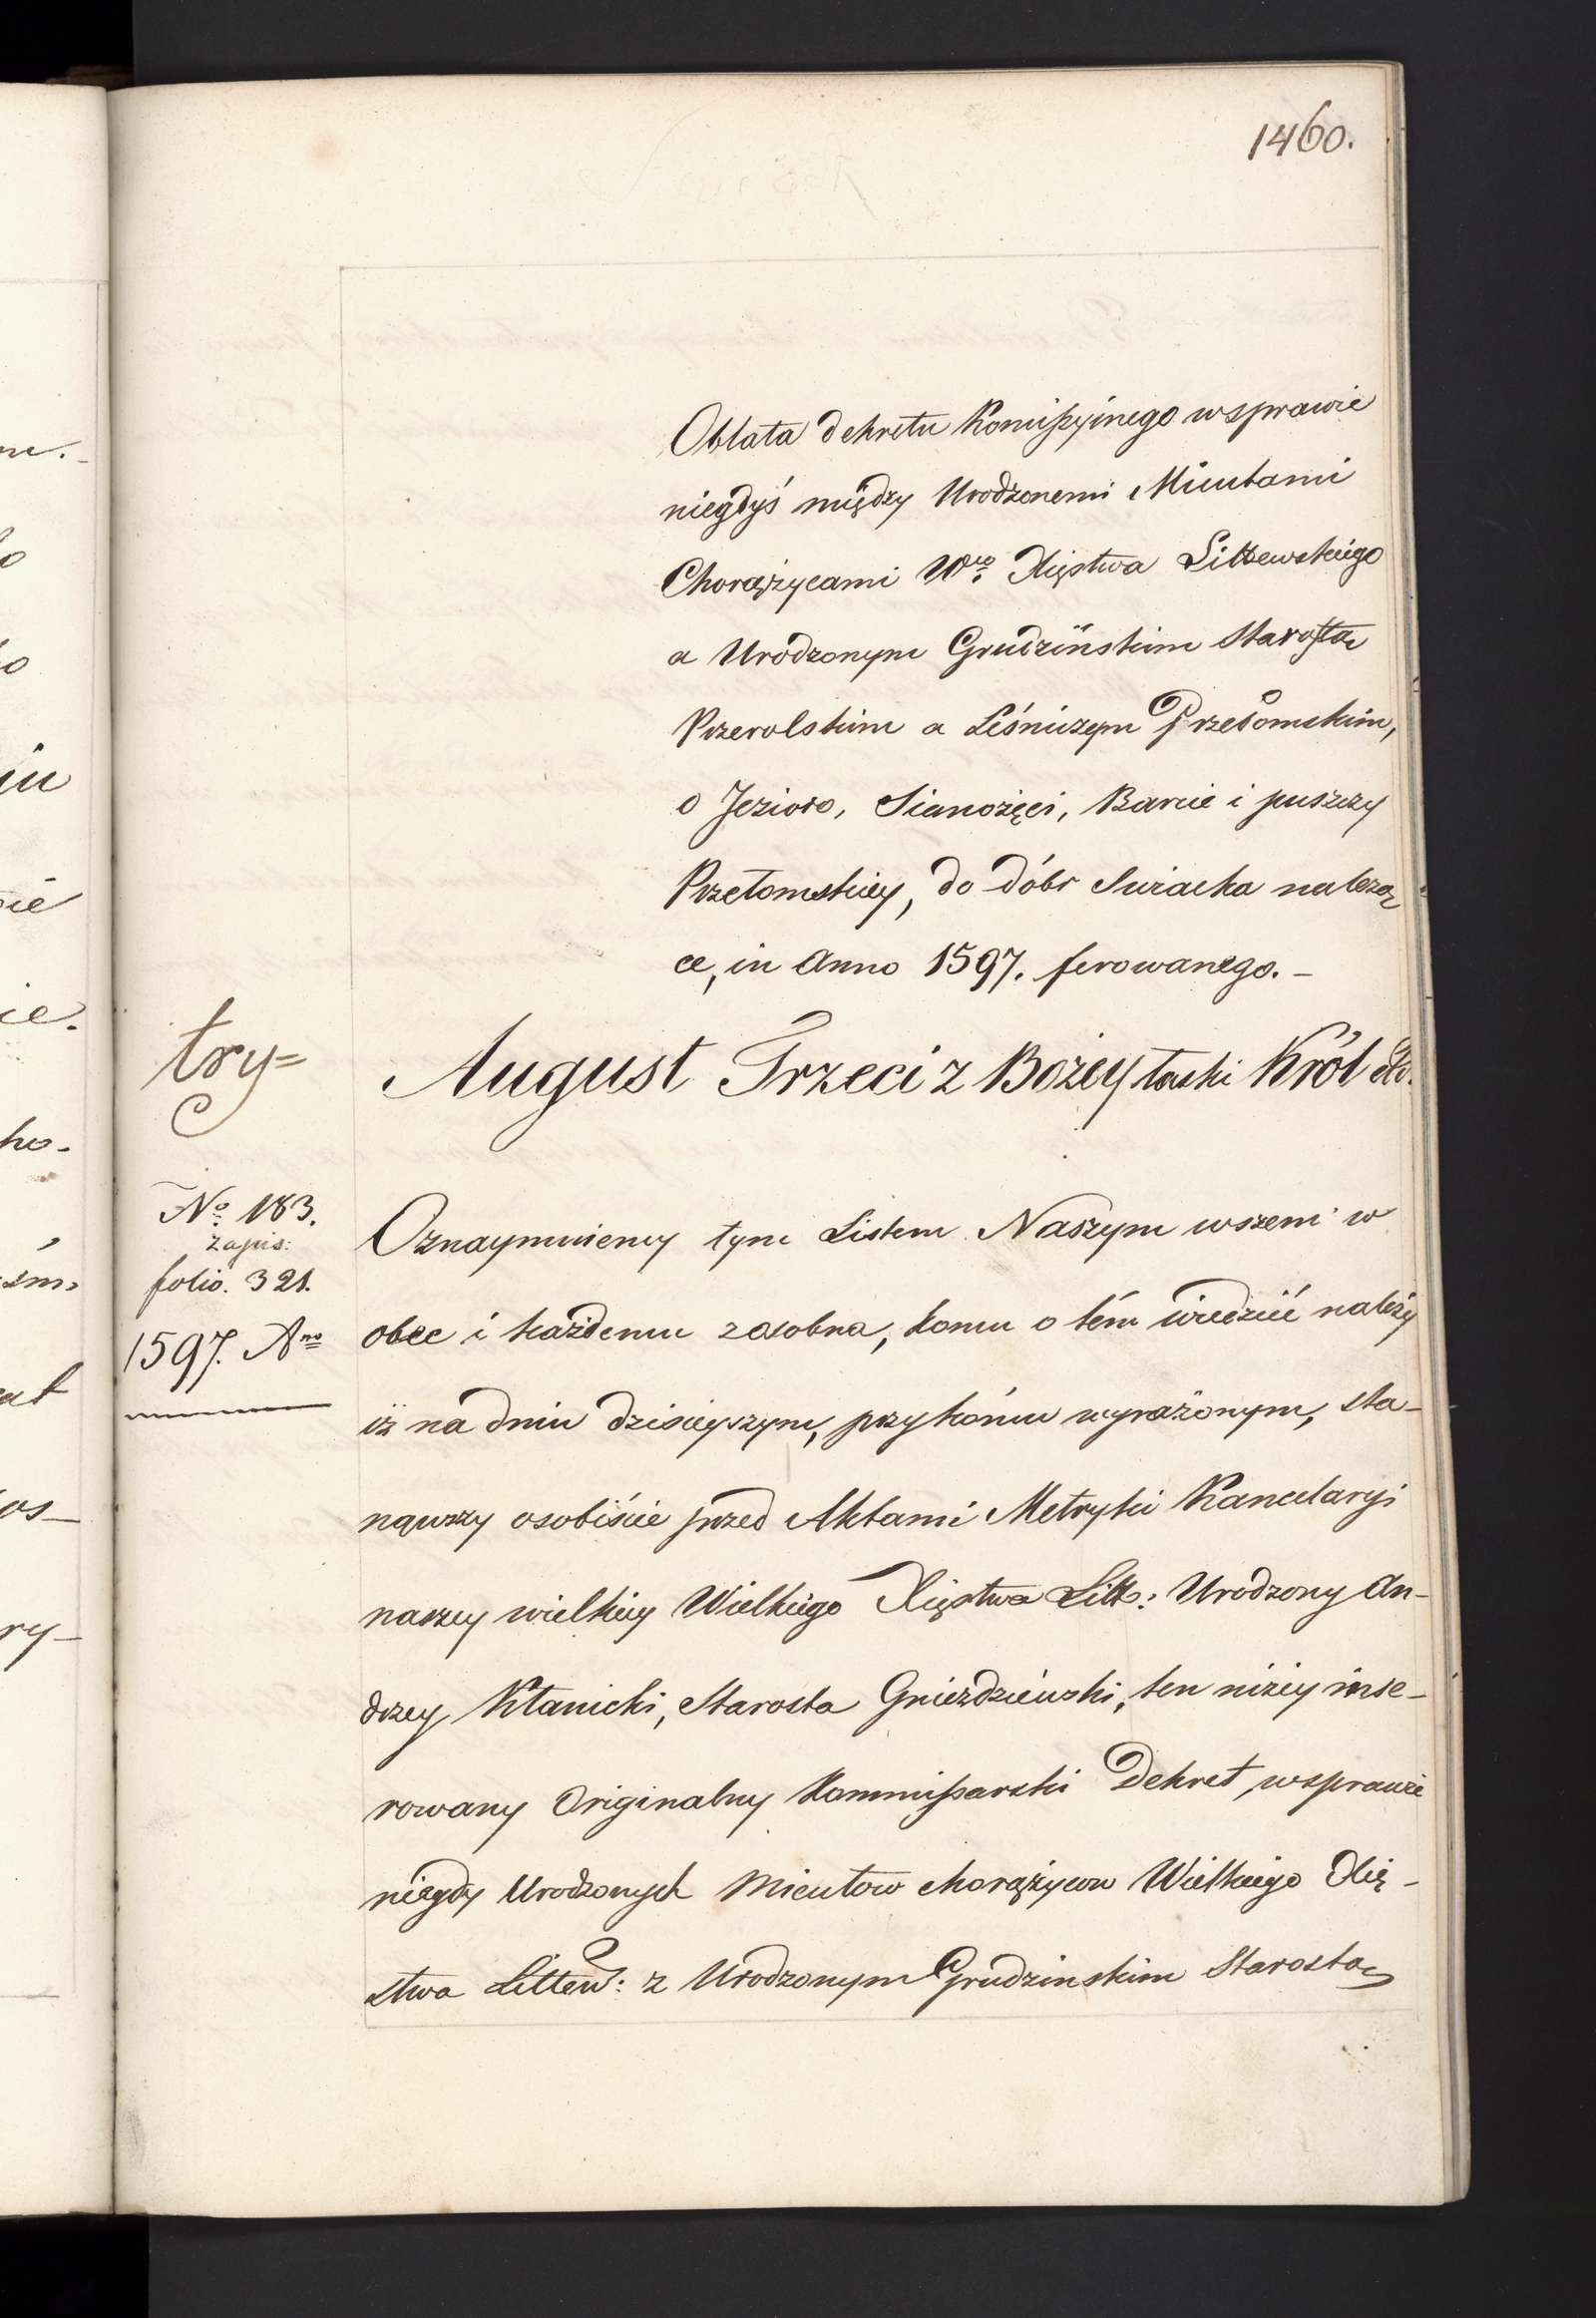 1460.
Oblata dekretu Komißyinego wsprawie
niegdyś między Urodzonemi Mieutami
Chorążycami Wgo Xięstwa Littewskiego
a Urodzonym Grudzińskim Starostą
Przerolskim a Leśniczym Przełomskim,
o Jezioro, Sianożęci, Barcie i puszczy
Przełomskiey, do dóbr Swiacka należą
ce, in Anno 1597. ferowanego. -
try=
August Trzeci z Bożey łaski Król
No 183.
zapis:
folio. 321.
1597. Ano
Oznaymuiemy tym Listem Naszym wszem w
obec i każdemu zosobna, komu o tém wiedzieć należy
iż na dniu dzisieyszym, przykońcu wyrażonym, sta-
nąwszy osobiście przed Aktami Metryki Kancelaryi
naszey wielkiey Wielkiego Xięstwa Litt: Urodzony An-
drzey Kłanicki, Starosta Gnieździeński, ten niżey inse-
rowany Originalny Kommißarski Dekret, wsprawie
niegdy Urodzonych Mieutow chorążycow Wielkiego Xię-
stwa Littew: z Urodzonym Grudzinskim Starostą